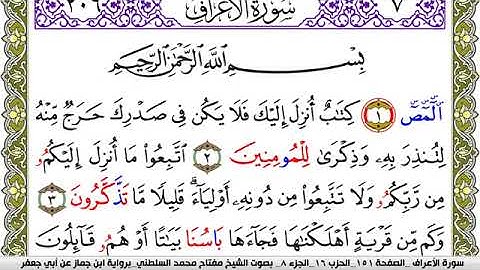 ٢٠٦ سُورَةُ الأَعْرَافِ ٧
بِسْمِ اللَّهِ الرَّحْمَٰنِ الرَّحِيمِ
الٓمٓصٓ ١ كِتَٰبٌ أُنزِلَ إِلَيْكَ فَلَا يَكُن فِى صَدْرِكَ حَرَجٌ مِّنْهُ
لِتُنذِرَ بِهِۦ وَذِكْرَىٰ لِلْمُومِنِينَ ٢ ٱتَّبِعُوا۟ مَا أُنزِلَ إِلَيْكُمُۥ
مِن رَّبِّكُمُۥ وَلَا تَتَّبِعُوا۟ مِن دُونِهِۦ أَوْلِيَآءَ ۗ قَلِيلًا مَّا تَذَّكَّرُونَ ٣
وَكَم مِّن قَرْيَةٍ أَهْلَكْنَٰهَا فَجَآءَهَا بَاسُنَا بَيَٰتًا أَوْ هُمُۥ قَآئِلُونَ
سورة الأعراف _الصفحة ١٥١_ الحزب ١٦_ الجزء ٨_ بصوت الشيخ مفتاح محمد السلطني_ برواية ابن جماز عن أبي جعفر